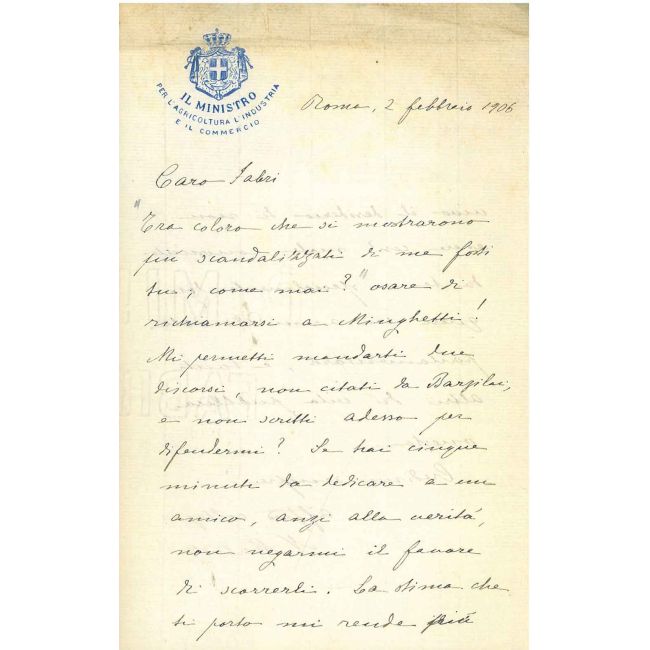 IL MINISTRO
PER L'AGRICOLTURA L'INDUSTRIA
E IL COMMERCIO
Roma, 2 febbraio 1906
Caro Fabri
"Tra coloro che si mostrarono
più scandalizzati di me fosti
tu, come mai?" osare di
richiamarsi a Minghetti!
Mi permetti mandarti due
discorsi non citati da Barzilai,
e non scritti adesso per
difendermi? Se hai cinque
minuti da dedicare a un
amico, anzi alla verità,
non negarmi il favore
di scorrerli. La stima che
ti porto mi rende più